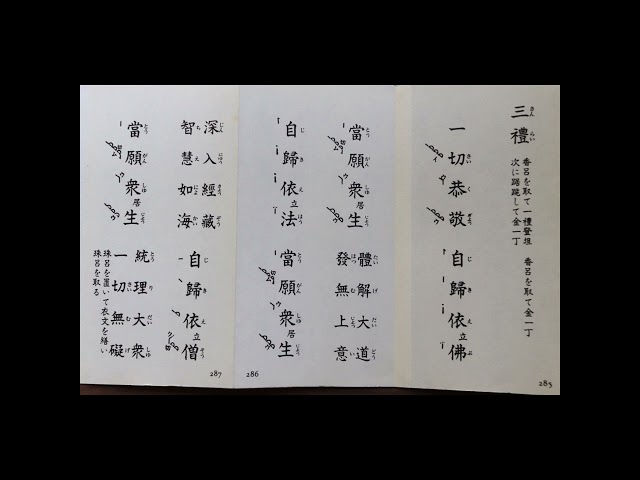 三禮
香呂を取て一禮登坦 香呂を取て金一丁
次に踞跪して金一丁
一切恭敬 自歸依佛
285
當願衆生居 體解大道
發無上意
自歸依立法 當願衆生居
286
深入經藏
智慧如海
自歸依立僧
當願衆生居 統理大衆
一切無礙
珠呂を置いて衣文を繕い
珠呂を取る
287